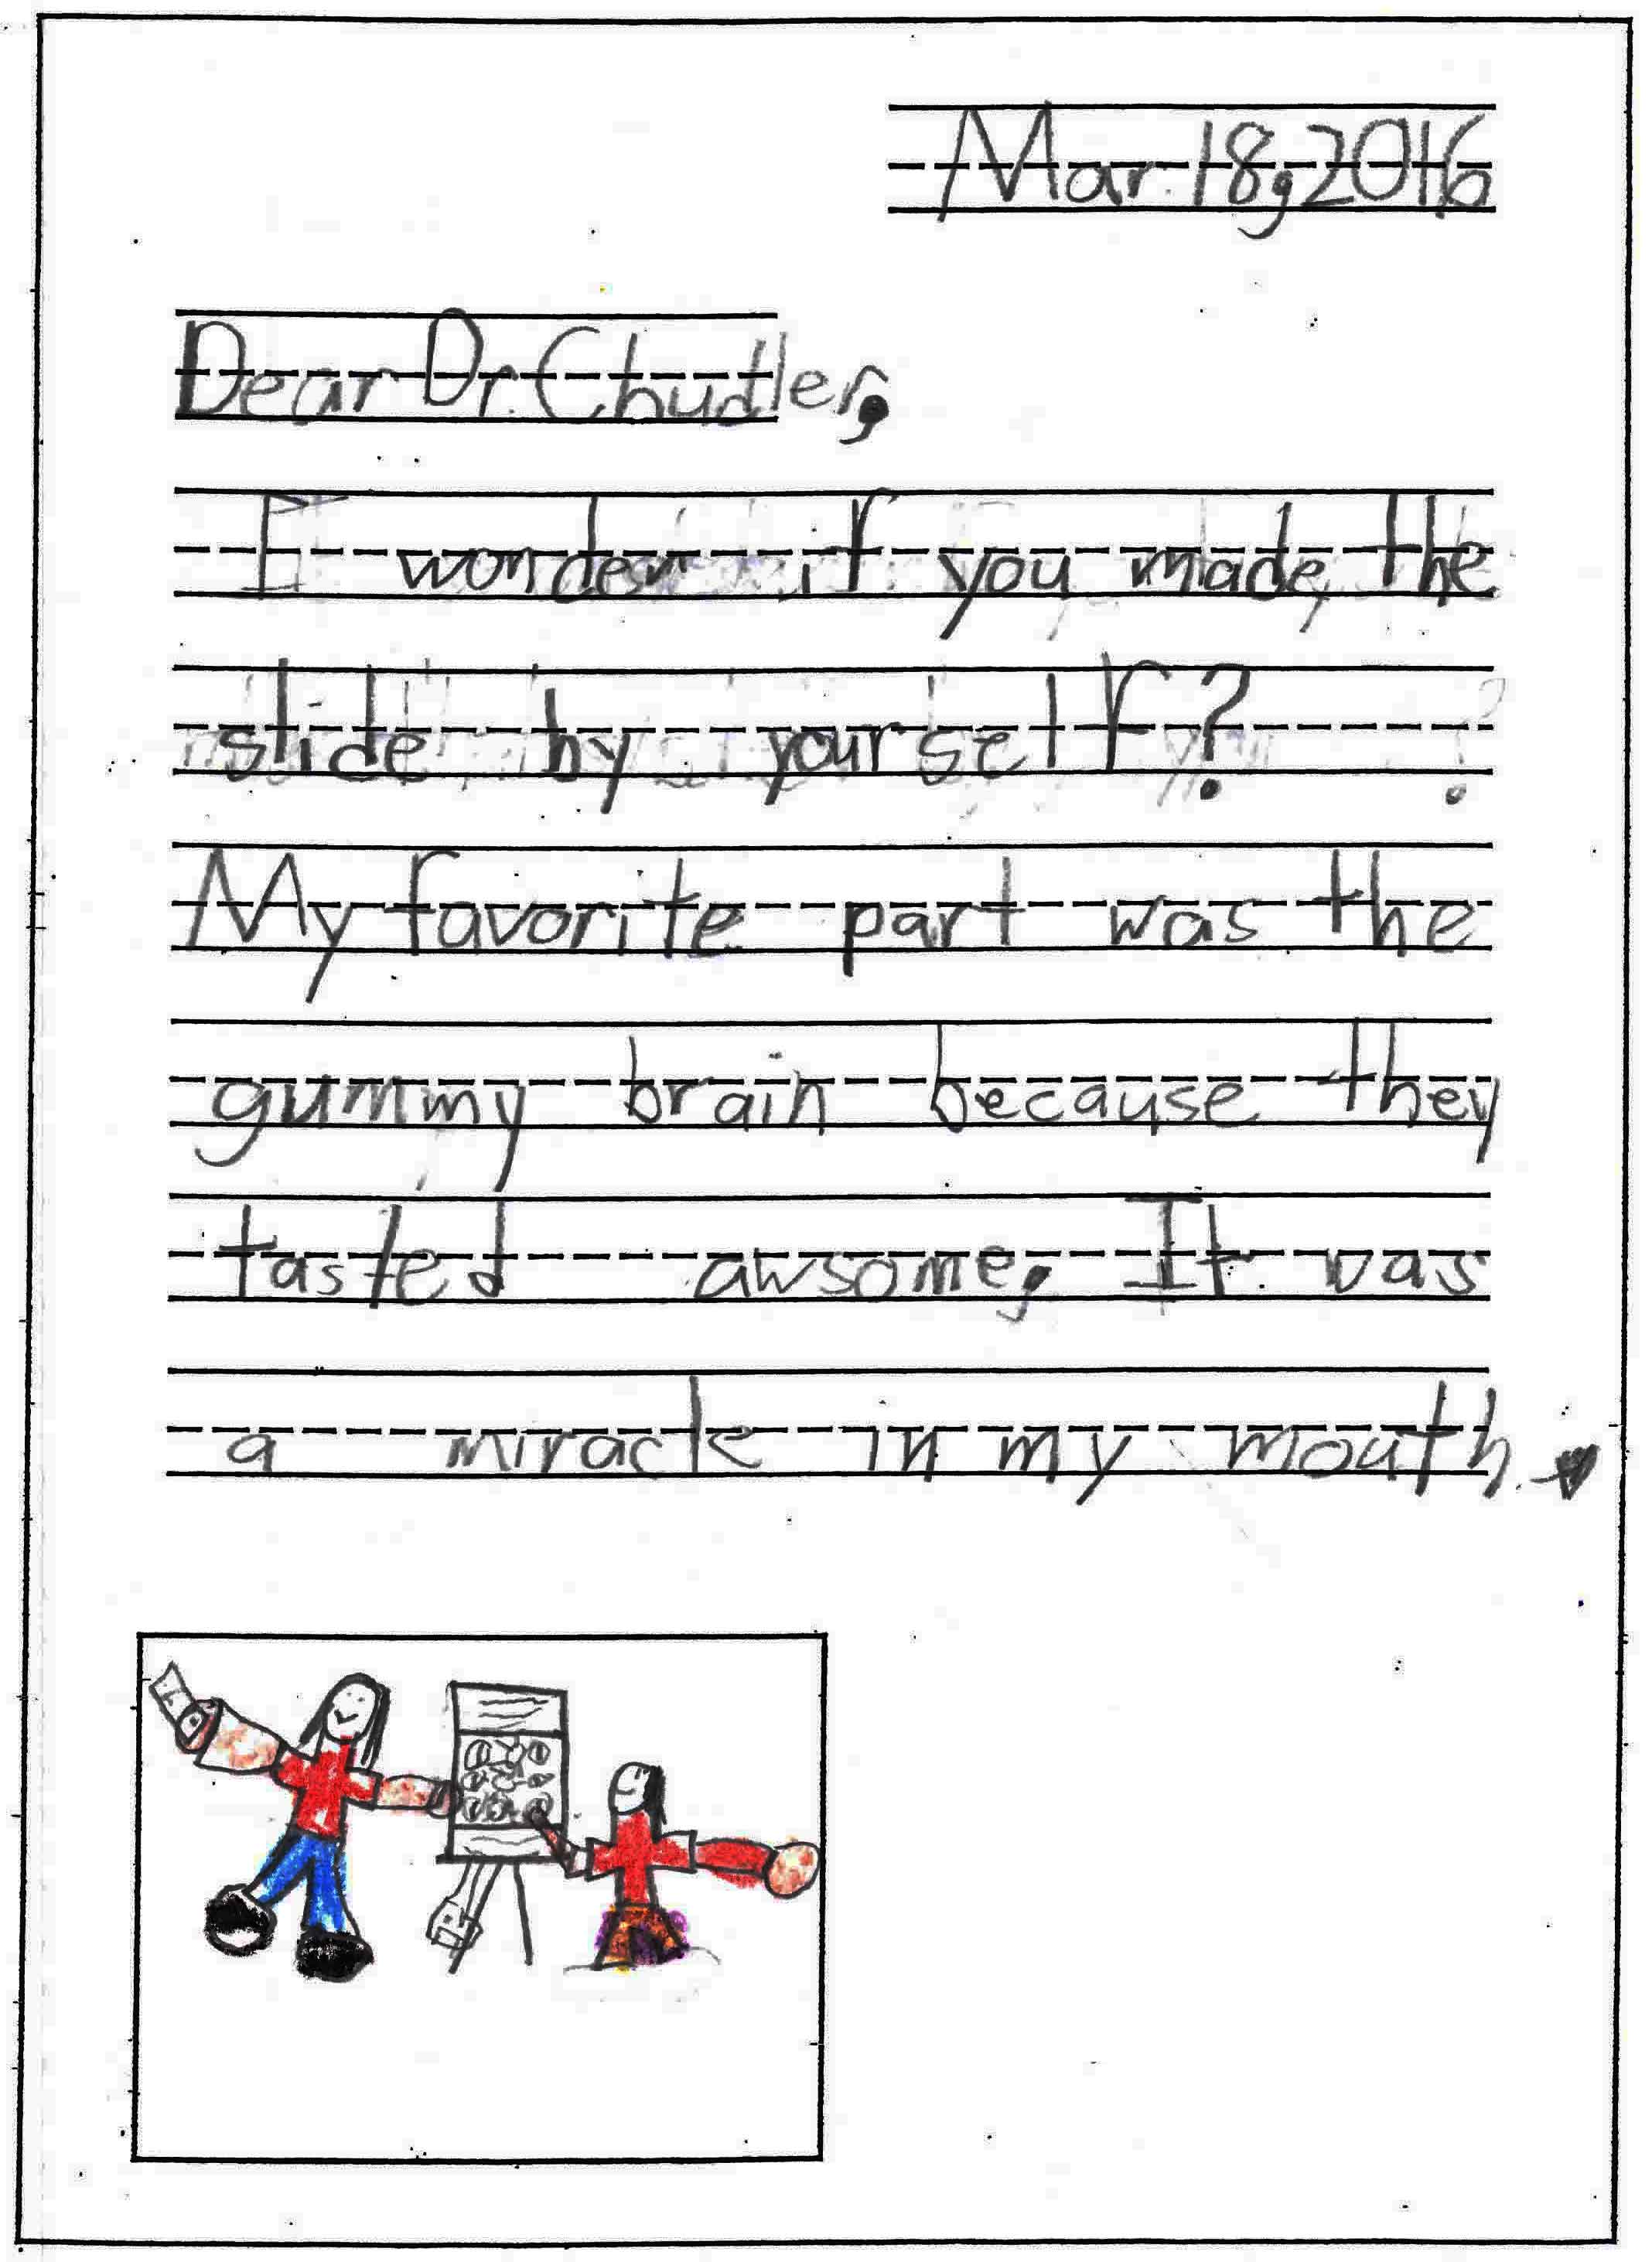 Mar. 18, 2016
Dear Dr. Chudler,
I wonder if you made the
slide by yourself?
My favorite part was the
gummy brain because they
tasted awsome. It was
a miracle in my mouth.